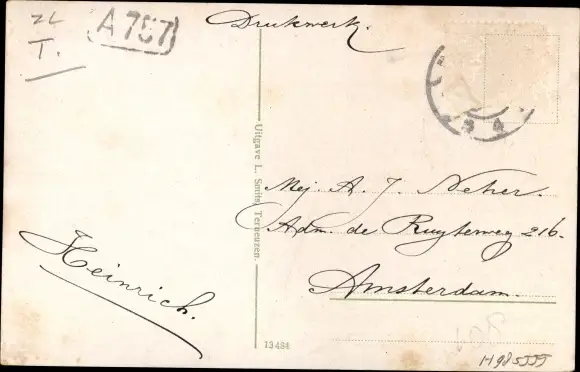 ZL
T.
A 757
Drukwerk.
Uitgave L. Smits, Terneuzen.
Mej. A. J. Neher.
Adm. de Ruyterweg 216.
Amsterdam.
Heinrich.
13484
H985555